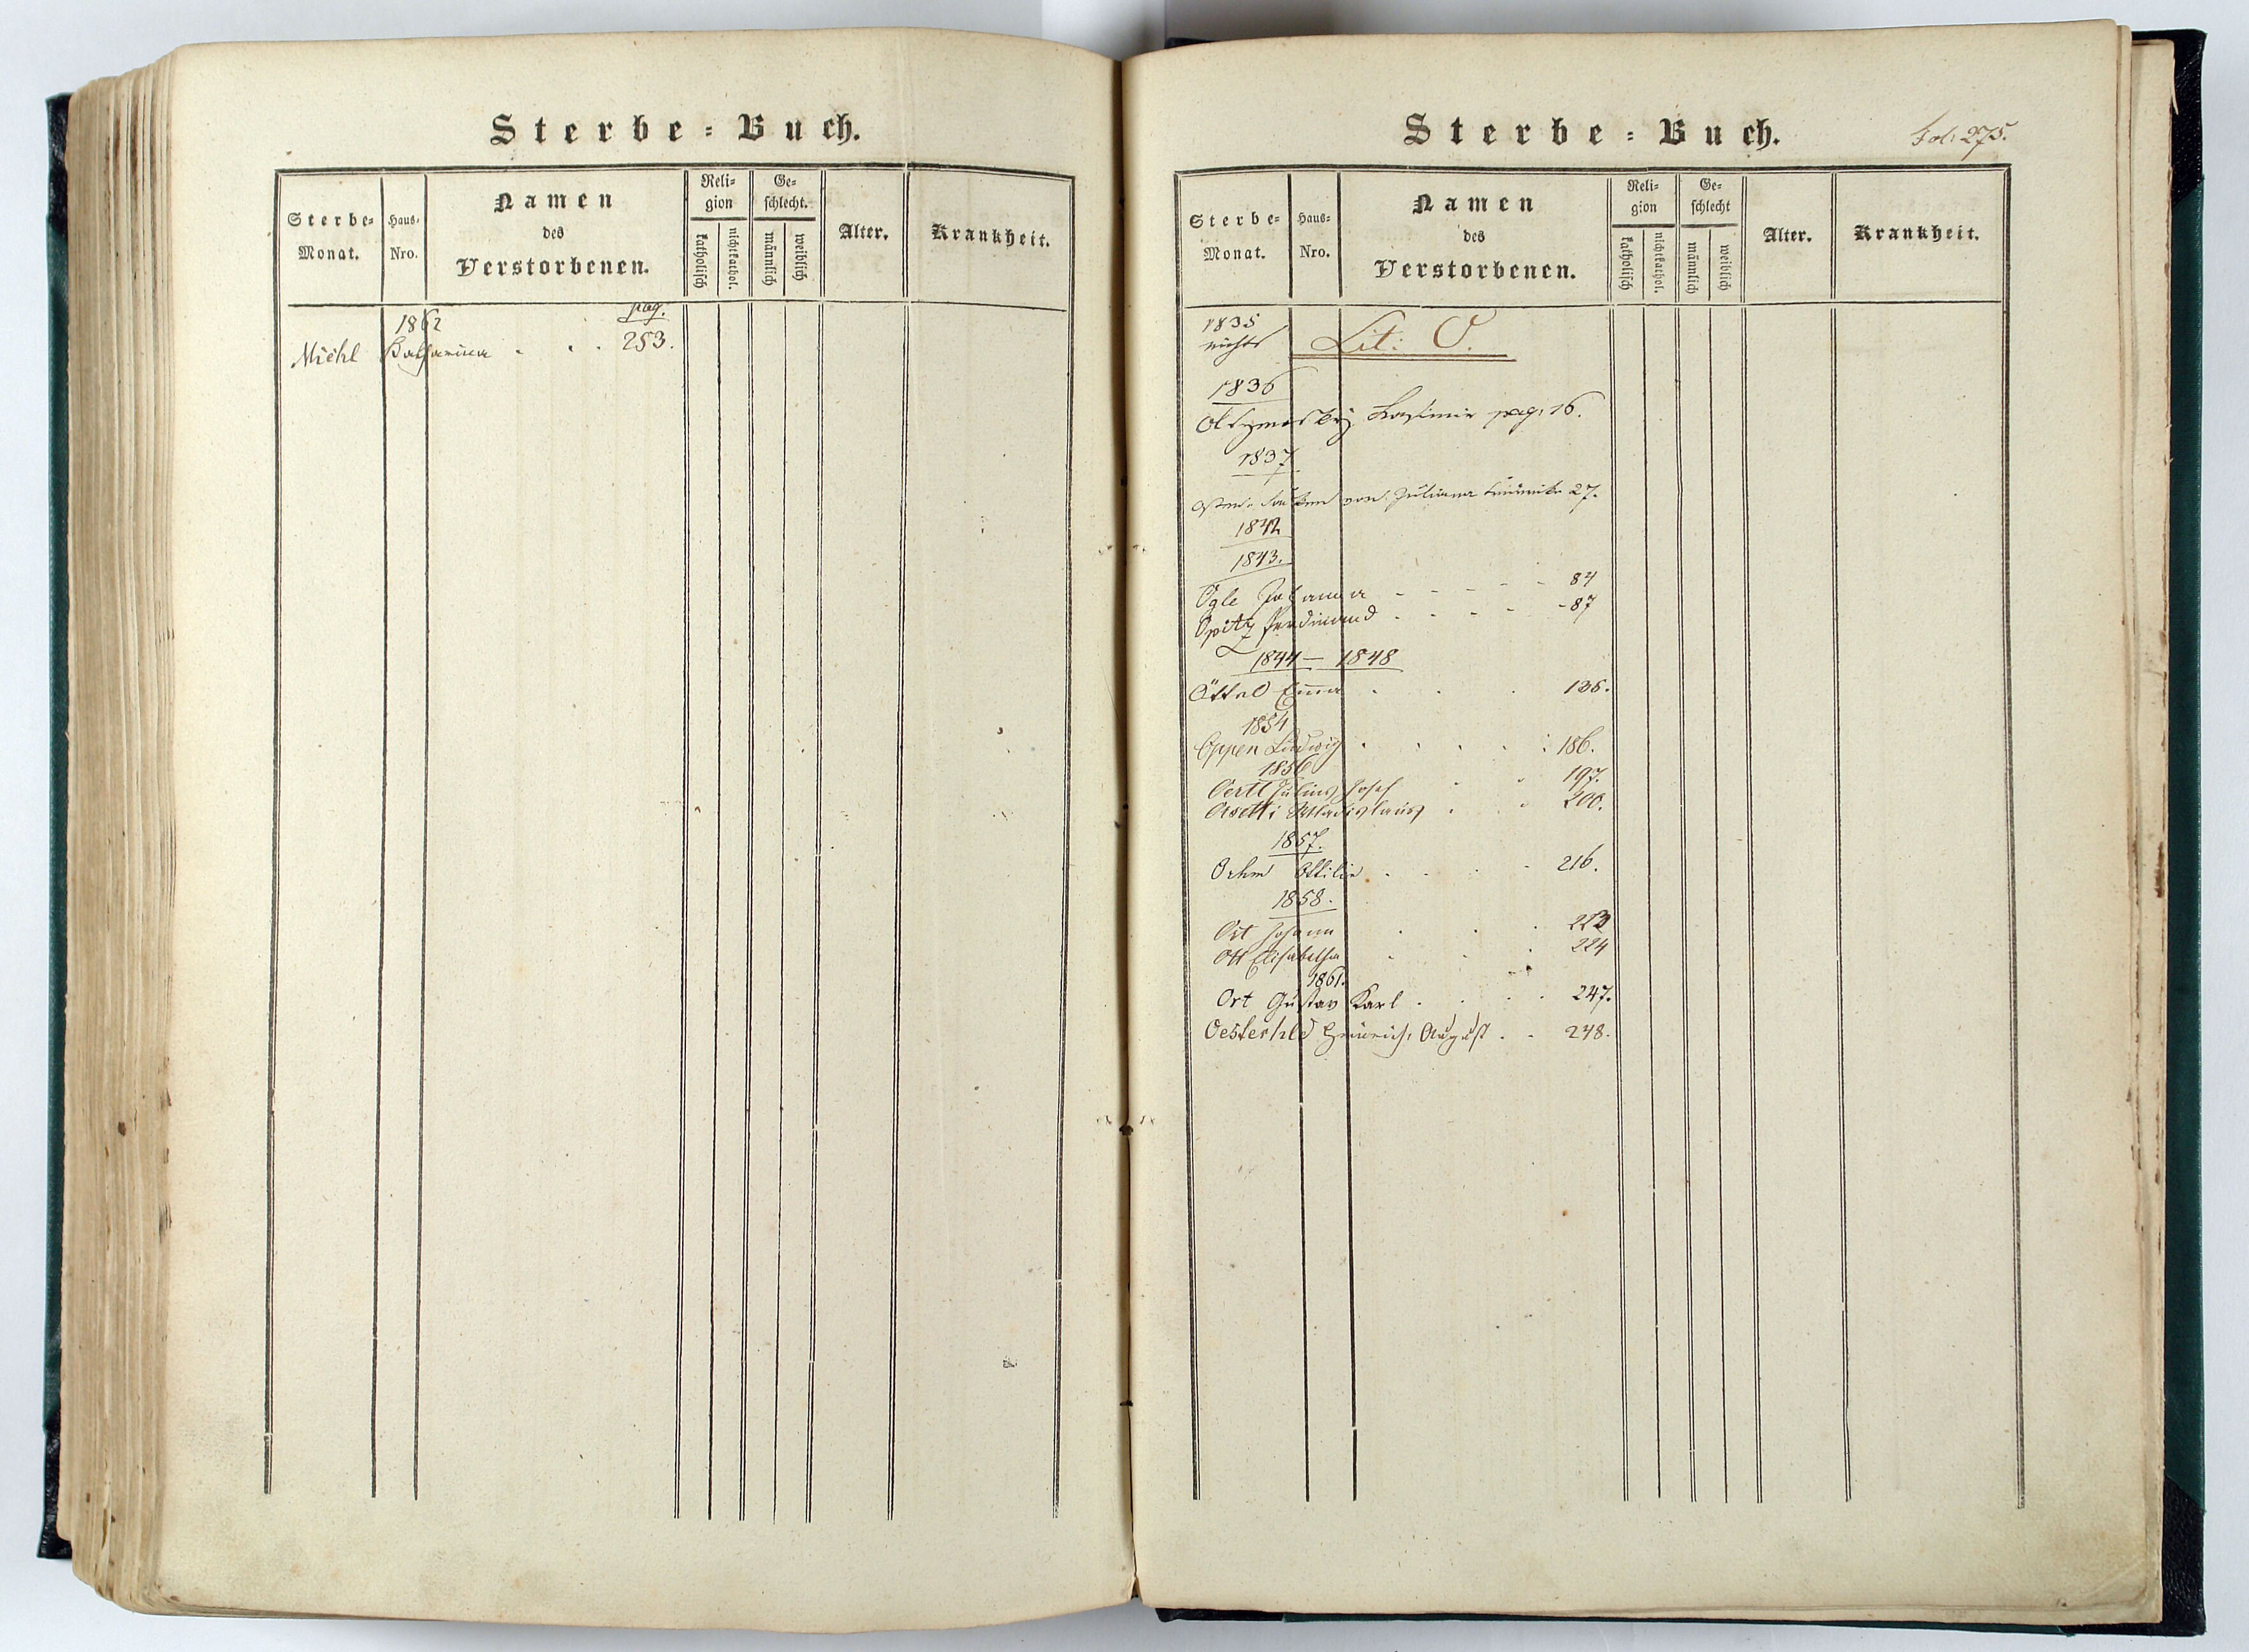 Sterbe-Buch.
Sterbe-Monat.
Haus-Nro.
Namen
des
Verstorbenen.
Religion
katholisch
nichtkathol.
Geschlecht.
männlich
weiblich
Alter.
Krankheit.
1862
pag.
Miehl Katharina . . . 253.
Sterbe-Buch.
Fol: 275.
Sterbe-Monat.
Haus-Nro.
Namen
des
Verstorbenen.
Religion
katholisch
nichtkathol.
Geschlecht
männlich
weiblich
Alter.
Krankheit.
1835
nichts
Lit: O.
1836
Kasimir pag: 16.
1837
von Juliana 27.
1842
1843.
Ogle Johanna - - - - - 84
Opitz Ferdinand . - - - - 87
1844 — 1848
Öttel Emma . . . 135.
1854
Oppen Ludwig . . . . : 186.
1856
Oertl Julius Josef . . 197.
Orsetti Wladislaus . . 200.
1857.
Orhm Ottilie . . . . 216.
1858.
Ort Johann . . . 223
Ott Elisabetha . . . 224
1861.
Ort Gustav Karl . . . . 247.
Oesterhld Heinrich, August . . 248.